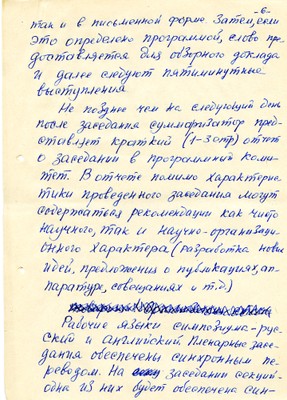 -6-
так и в письменной форме. Затем, если
это определено программой, слово пре-
доставляется для обзорного доклада
и далее следуют пятиминутные
выступления
Не позднее чем на следующий день
после заседания суммофизатор пред-
ставляет краткий (1-3 стр) отчет
о заседании в программный коми-
тет. В отчете помимо характерис-
тики проведенного заседания могут
содержаться рекомендации как чисто
научного, так и научно-организаци-
онного характера (разработка новых
идей, предложения о публикациях, ап-
паратуре, совещаниях и т.д.)
Рабочие языки симпозиума-рус-
ский и английский. Пленарные засе-
дания обеспечены синхронным пе-
реводом. На заседании секций-
одна из них будет обеспечена син-